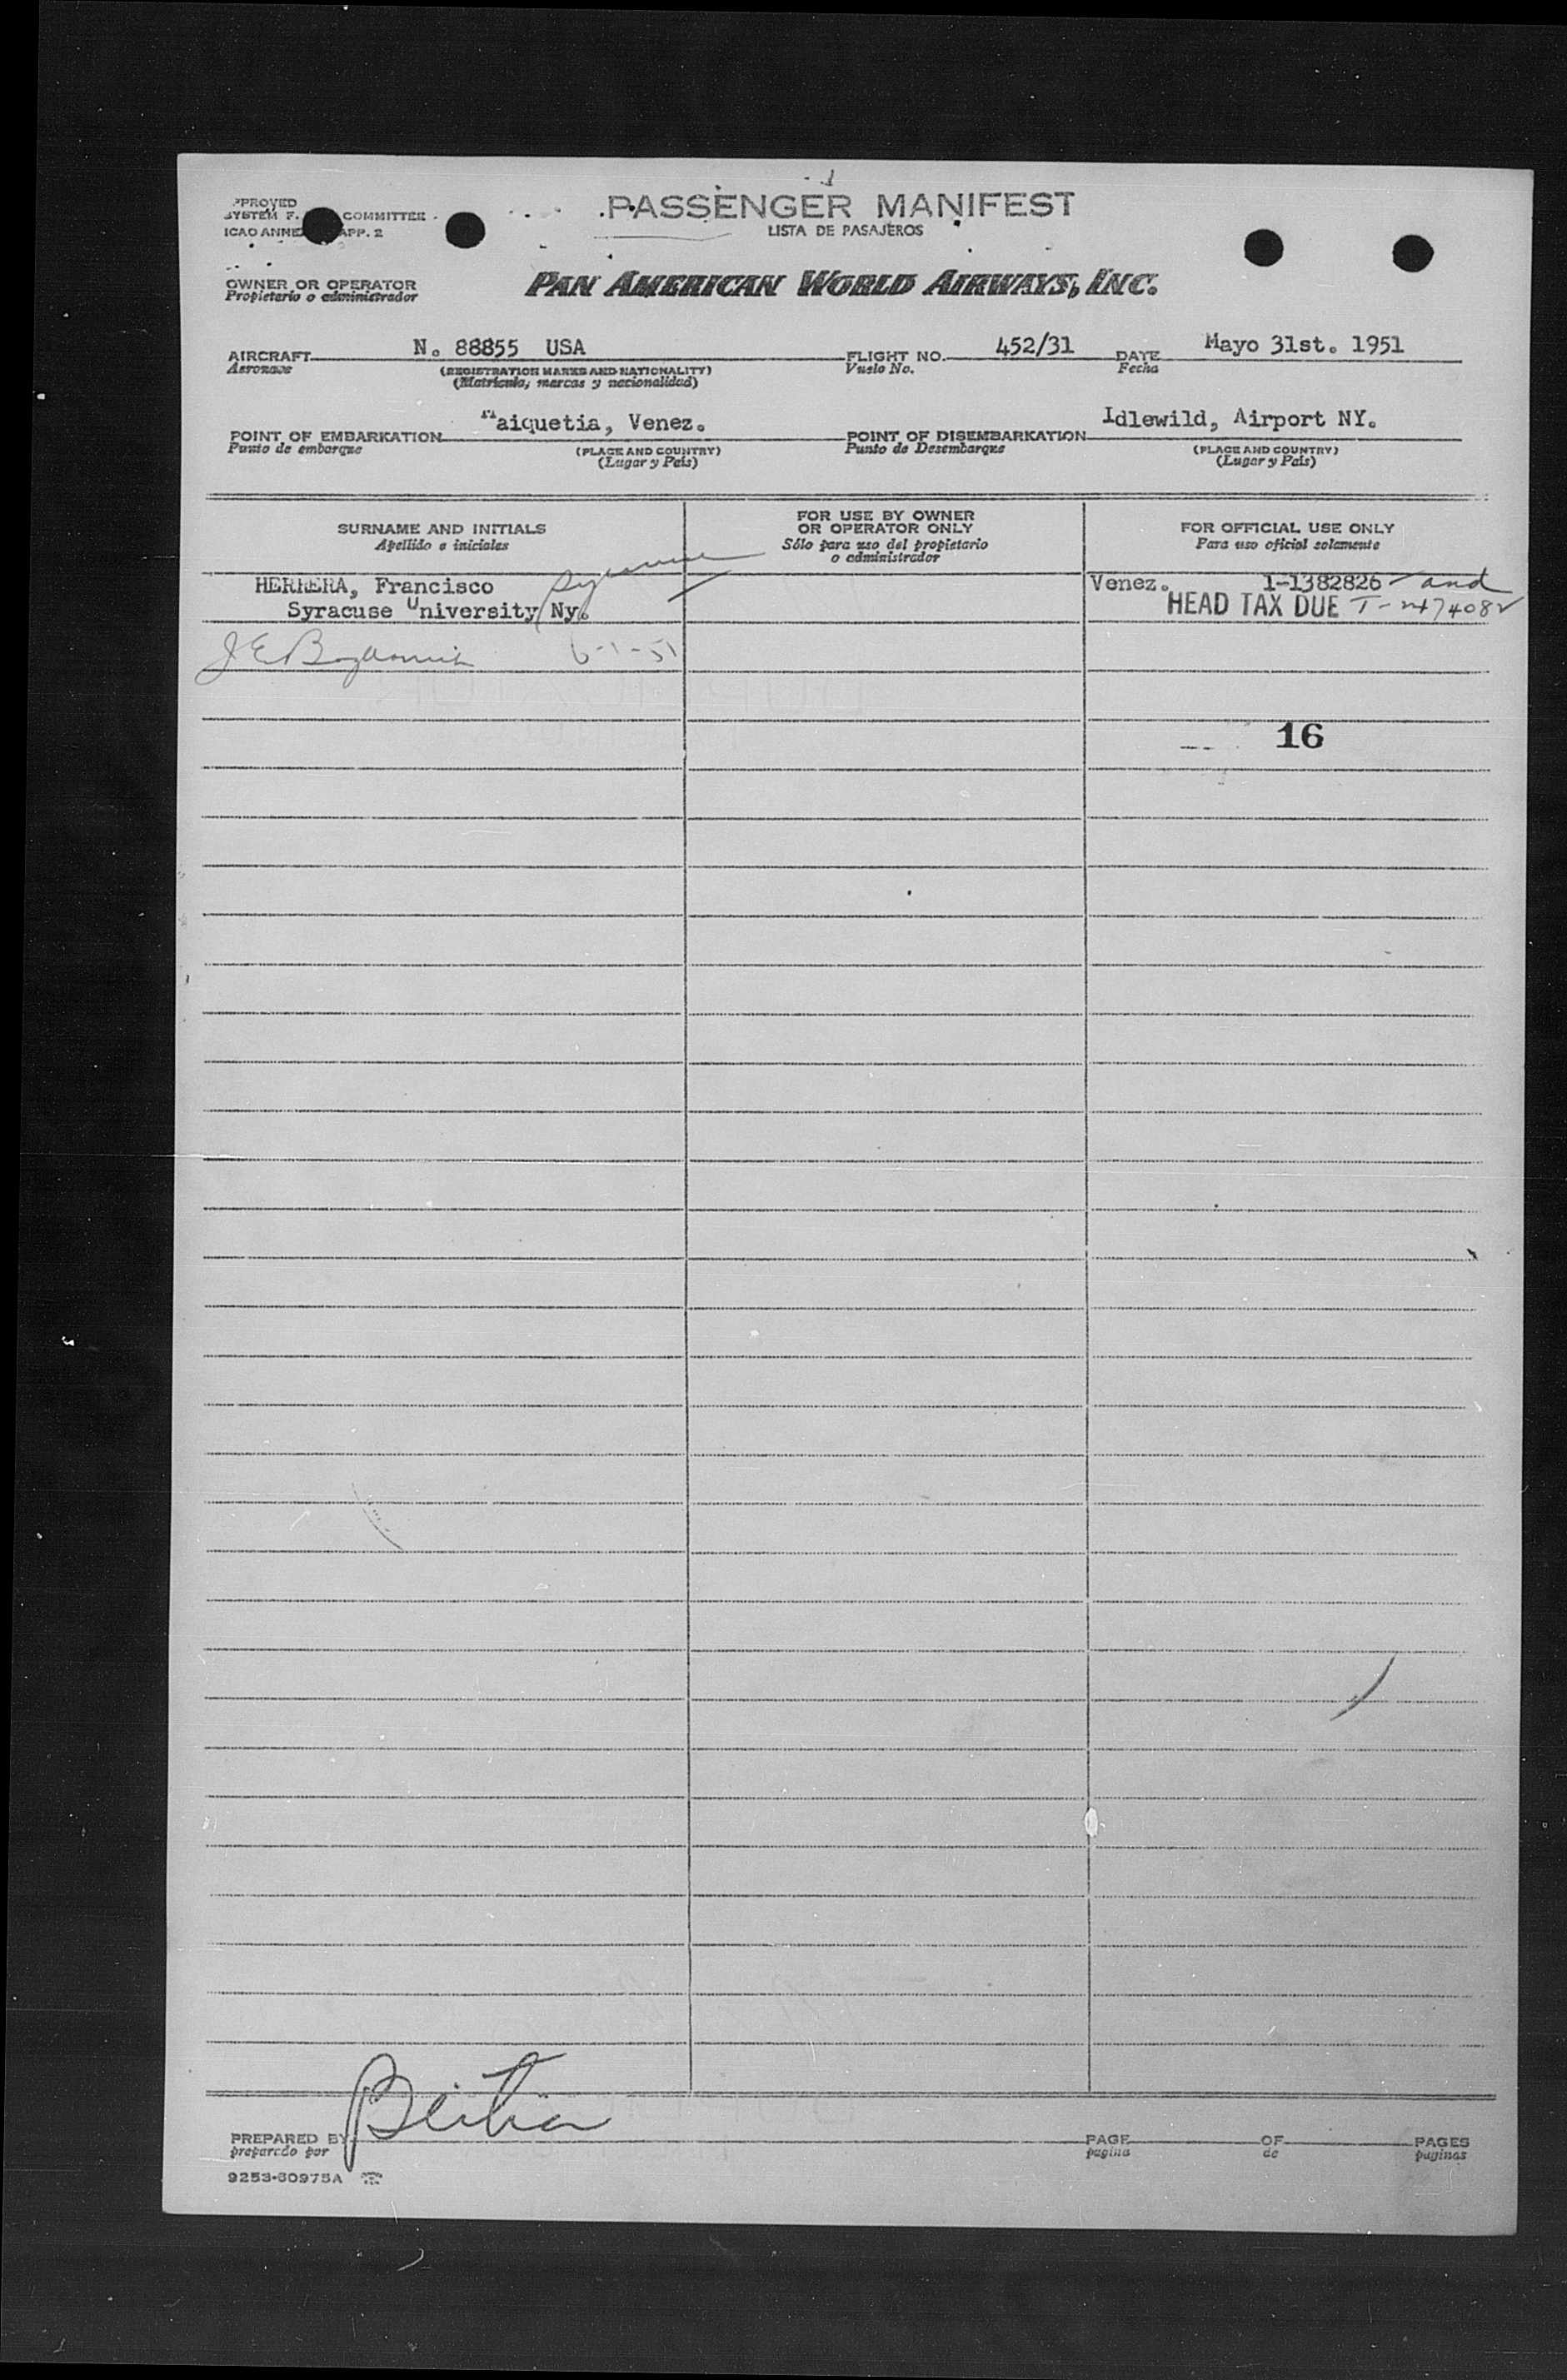 PASSENGER MANIFEST
LISTA DE PASAJEROS
PPROVED
SYSTEM F. COMMITTEE
ICAO ANNE APP. 2
OWNER OR OPERATOR
Propietario o administrador
PAN AMERICAN WORLD AIRWAYS, INC.
AIRCRAFT N. 88855 USA FLIGHT NO. 452/31 DATE Mayo 31st. 1951
Aeronave (REGISTRATION MARKS AND NATIONALITY) Vuelo No. Fecha
(Matrícula, marcas y nacionalidad)
POINT OF EMBARKATION Maiquetia, Venez. POINT OF DISEMBARKATION Idlewild, Airport NY.
Punto de embarque (PLACE AND COUNTRY) Punto de Desembarque (PLACE AND COUNTRY)
(Lugar y País) (Lugar y País)
SURNAME AND INITIALS FOR USE BY OWNER OR OPERATOR ONLY FOR OFFICIAL USE ONLY
Apellido e iniciales Sólo para uso del propietario o administrador Para uso oficial solamente
HERRERA, Francisco Venez. 1-1382826 and
Syracuse University Ny. HEAD TAX DUE T-2474082
6-1-51
16
PREPARED BY PAGE OF PAGES
preparado por pagina de paginas
9253-60975A